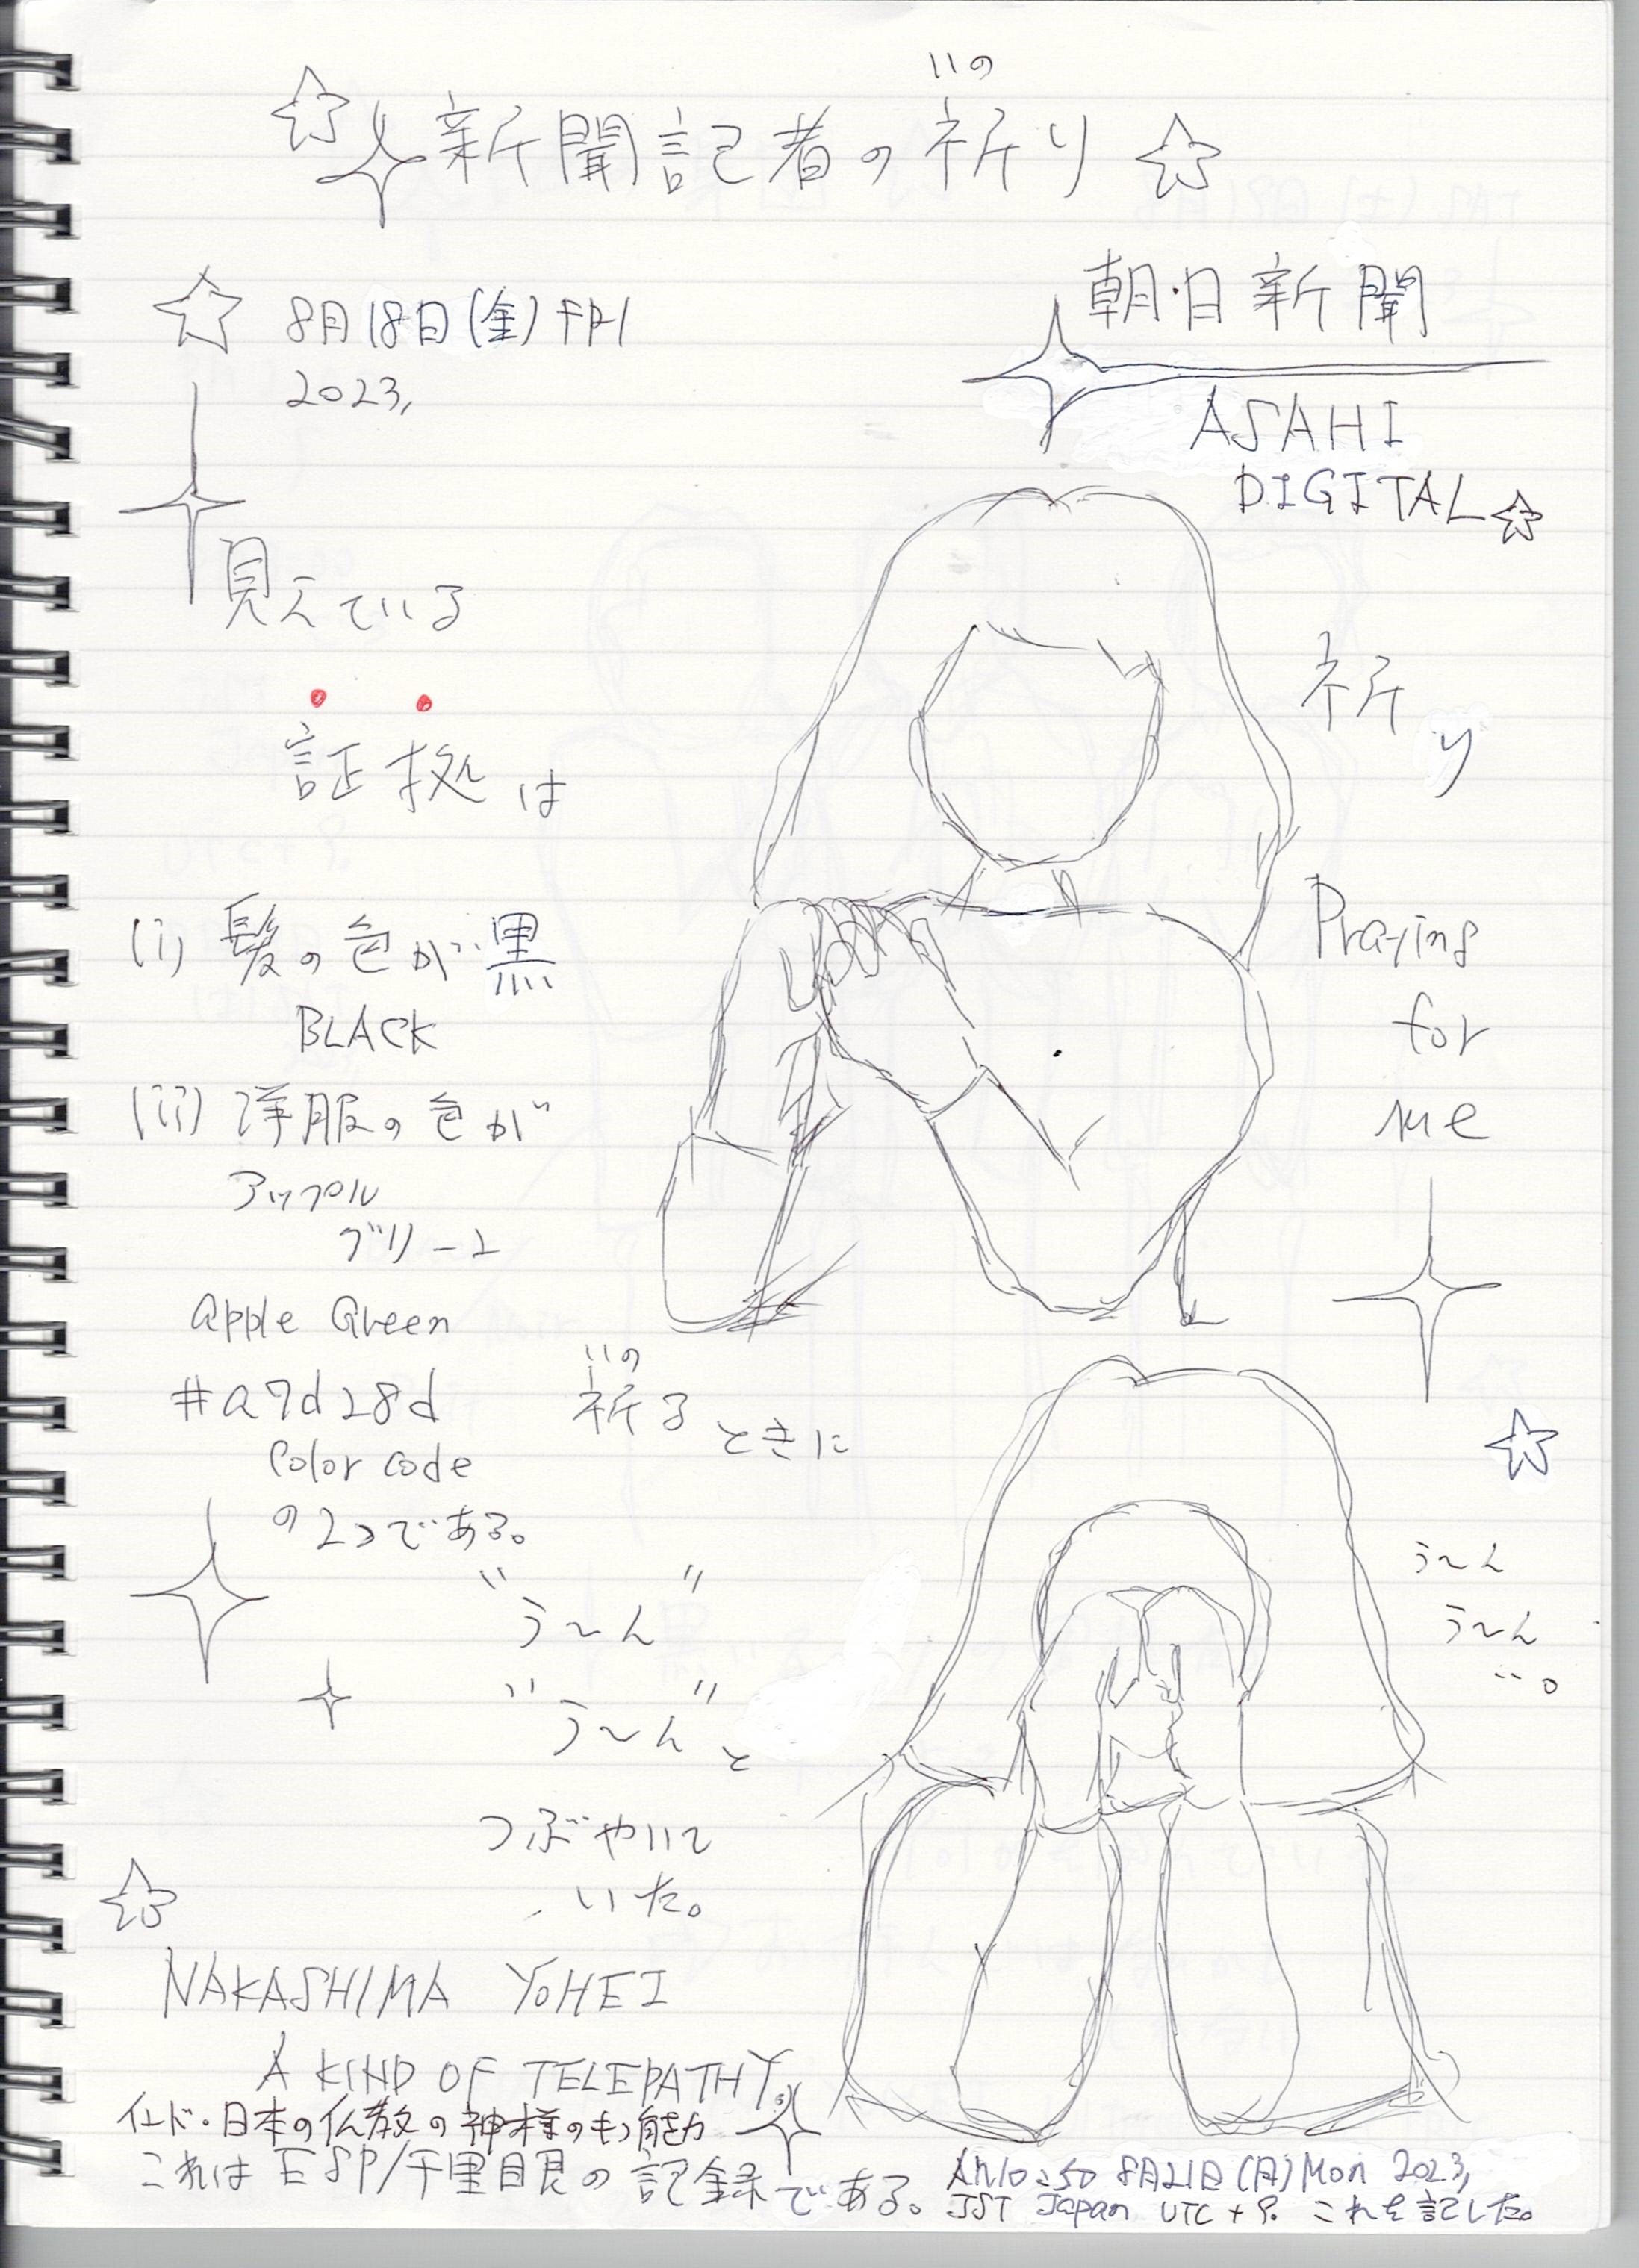 いの
新聞記者の祈り
8月18日(金) FRI
2023,
朝日新聞
ASAHI
DIGITAL
見えている
証拠は
祈り
Praying
for
me
(i) 髪の色が黒
BLACK
(ii) 洋服の色が
アップル
グリーン
apple Green
#a7d28d
Color code
の2つである。
いの
祈るときに
"う〜ん"
"う〜ん"と
つぶやいて
いた。
う〜ん
う〜ん
…。
NAKASHIMA YOHEI
A KIND OF TELEPATHY.
インド・日本の仏教の神様のもつ能力
これはESP/千里眼の記録である。
AM10:50 8月21日(月)Mon 2023,
JST Japan UTC+9. これを記した。